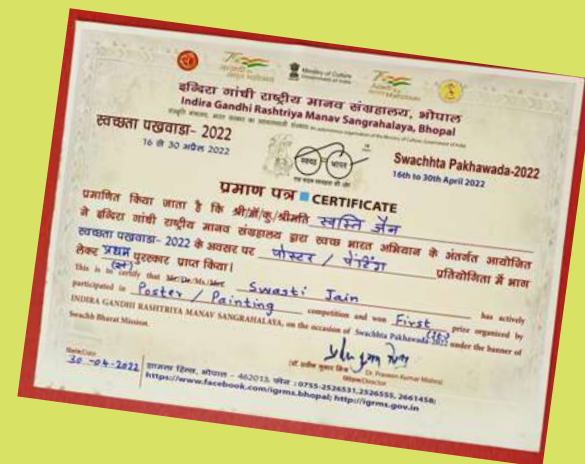 Ministry of Culture
इन्दिरा गांधी राष्ट्रीय मानव संग्रहालय, भोपाल
Indira Gandhi Rashtriya Manav Sangrahalaya, Bhopal
स्वच्छता पखवाडा- 2022
16 से 30 अप्रैल 2022
स्वच्छ भारत
एक कदम स्वच्छता की ओर
Swachhta Pakhawada-2022
16th to 30th April 2022
प्रमाण पत्र CERTIFICATE
प्रमाणित किया जाता है कि श्री/डॉ/कु./श्रीमति स्वस्ति जैन
ने इन्दिरा गांधी राष्ट्रीय मानव संग्रहालय द्वारा स्वच्छ भारत अभियान के अंतर्गत आयोजित
स्वच्छता पखवाडा- 2022 के अवसर पर पोस्टर / पेंटिंग प्रतियोगिता में भाग
लेकर प्रथम पुरस्कार प्राप्त किया।
This is to certify that Mr/Dr/Ms./Mrs. Swasti Jain has actively
participated in Poster / Painting competition and won First prize organized by
(1st)
INDIRA GANDHI RASHTRIYA MANAV SANGRAHALAYA, on the occasion of Swachhta Pakhawada-2022 under the banner of
Swachh Bharat Mission.
Dr. Praveen Kumar Mishra
Director
Date
30-04-2022
शामला हिल्स, भोपाल - 462013, फोन : 0755-2526531, 2526555, 2661458;
https://www.facebook.com/igrms.bhopal; http://igrms.gov.in